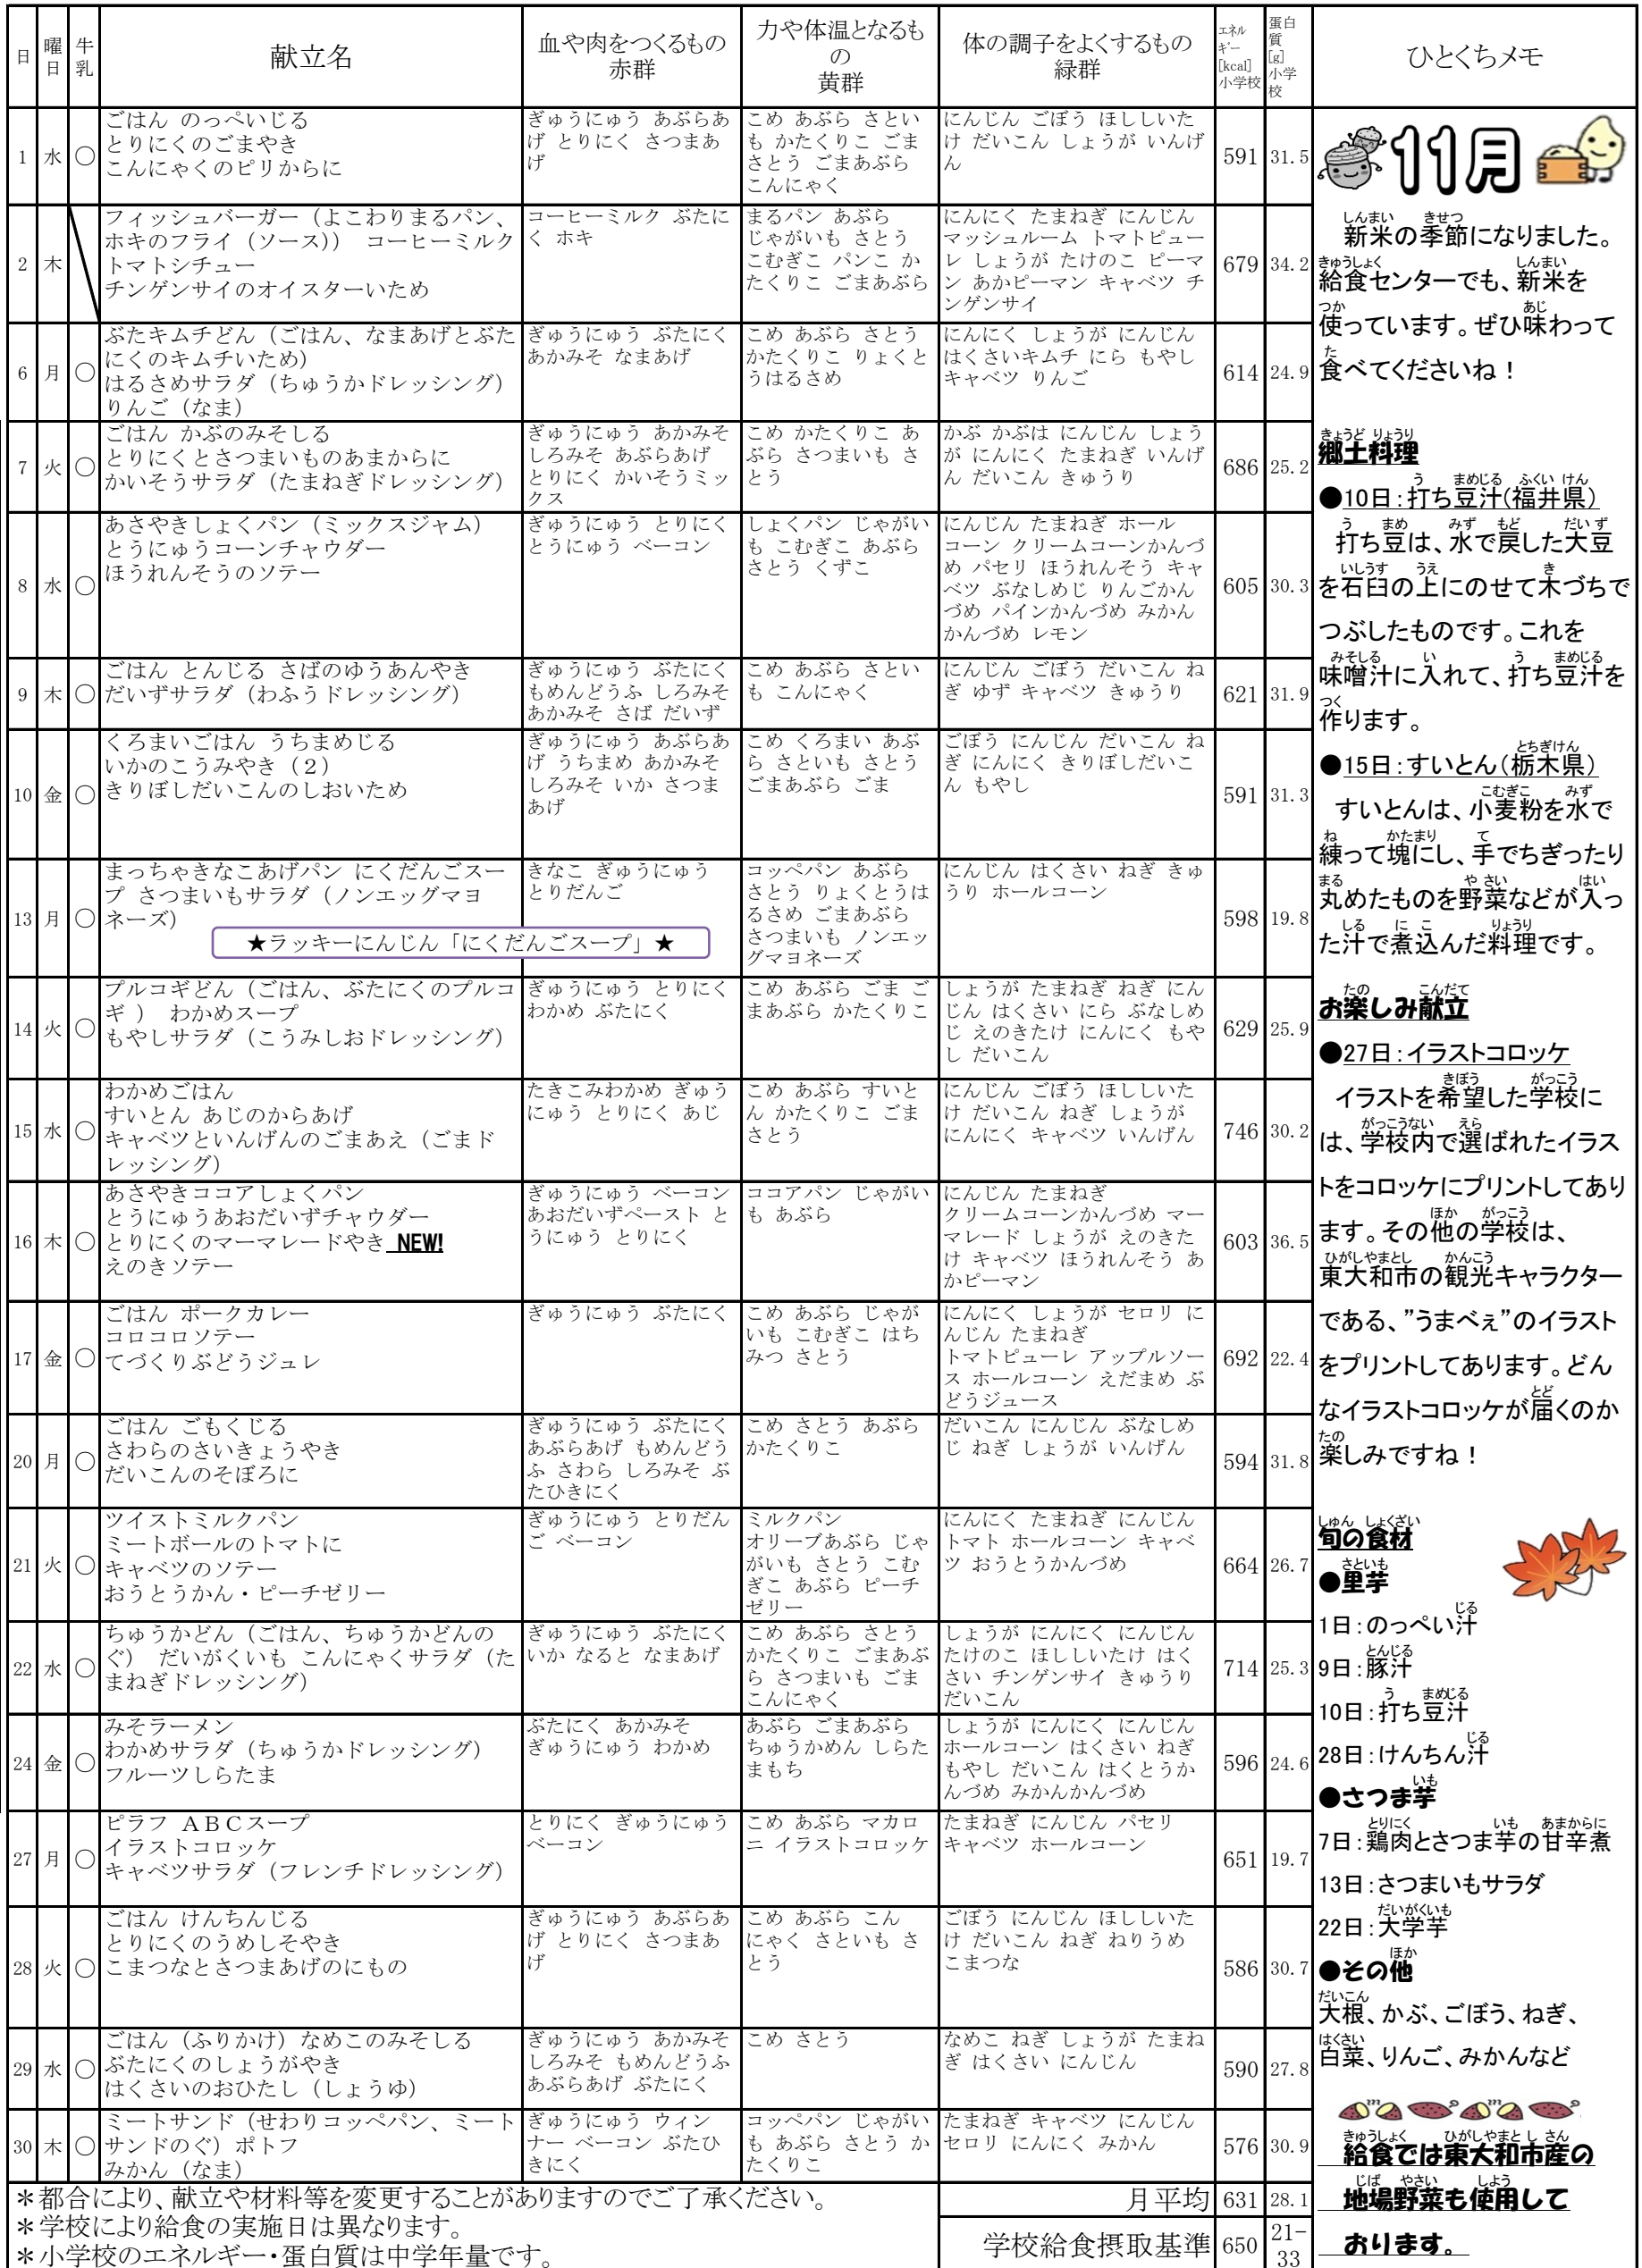 日
曜日
牛乳
献立名
血や肉をつくるもの
赤群
力や体温となるも
の
黄群
体の調子をよくするもの
緑群
エネル
ギー
[kcal]
小学校
蛋白
質
[g]
小学
校
ひとくちメモ
1 水 ○
ごはん のっぺいじる
とりにくのごまやき
こんにゃくのピリからに
ぎゅうにゅう あぶらあ
げ とりにく さつまあ
げ
こめ あぶら さとい
も かたくりこ ごま
さとう ごまあぶら
こんにゃく
にんじん ごぼう ほししいた
け だいこん しょうが いんげ
ん
591 31.5
2 木
フィッシュバーガー（よこわりまるパン、
ホキのフライ（ソース）） コーヒーミルク
トマトシチュー
チンゲンサイのオイスターいため
コーヒーミルク ぶたに
く ホキ
まるパン あぶら
じゃがいも さとう
こむぎこ パンこ か
たくりこ ごまあぶら
にんにく たまねぎ にんじん
マッシュルーム トマトピュー
レ しょうが たけのこ ピーマ
ン あかピーマン キャベツ チ
ンゲンサイ
679 34.2
6 月 ○
ぶたキムチどん（ごはん、なまあげとぶた
にくのキムチいため）
はるさめサラダ（ちゅうかドレッシング）
りんご（なま）
ぎゅうにゅう ぶたにく
あかみそ なまあげ
こめ あぶら さとう
かたくりこ りょくと
うはるさめ
にんにく しょうが にんじん
はくさいキムチ にら もやし
キャベツ りんご
614 24.9
7 火 ○
ごはん かぶのみそしる
とりにくとさつまいものあまからに
かいそうサラダ（たまねぎドレッシング）
ぎゅうにゅう あかみそ
しろみそ あぶらあげ
とりにく かいそうミッ
クス
こめ かたくりこ あ
ぶら さつまいも さ
とう
かぶ かぶは にんじん しょう
が にんにく たまねぎ いんげ
ん だいこん きゅうり
686 25.2
8 水 ○
あさやきしょくパン（ミックスジャム）
とうにゅうコーンチャウダー
ほうれんそうのソテー
ぎゅうにゅう とりにく
とうにゅう ベーコン
しょくパン じゃがい
も こむぎこ あぶら
さとう くずこ
にんじん たまねぎ ホール
コーン クリームコーンかんづ
め パセリ ほうれんそう キャ
ベツ ぶなしめじ りんごかん
づめ パインかんづめ みかん
かんづめ レモン
605 30.3
9 木 ○
ごはん とんじる さばのゆうあんやき
だいずサラダ（わふうドレッシング）
ぎゅうにゅう ぶたにく
もめんどうふ しろみそ
あかみそ さば だいず
こめ あぶら さとい
も こんにゃく
にんじん ごぼう だいこん ね
ぎ ゆず キャベツ きゅうり
621 31.9
10 金 ○
くろまいごはん うちまめじる
いかのこうみやき（２）
きりぼしだいこんのしおいため
ぎゅうにゅう あぶらあ
げ うちまめ あかみそ
しろみそ いか さつま
あげ
こめ くろまい あぶ
ら さといも さとう
ごまあぶら ごま
ごぼう にんじん だいこん ね
ぎ にんにく きりぼしだいこ
ん もやし
591 31.3
13 月 ○
まっちゃきなこあげパン にくだんごスー
プ さつまいもサラダ（ノンエッグマヨ
ネーズ）
★ラッキーにんじん「にくだんごスープ」★
きなこ ぎゅうにゅう
とりだんご
コッペパン あぶら
さとう りょくとうは
るさめ ごまあぶら
さつまいも ノンエッ
グマヨネーズ
にんじん はくさい ねぎ きゅ
うり ホールコーン
598 19.8
14 火 ○
プルコギどん（ごはん、ぶたにくのプルコ
ギ ） わかめスープ
もやしサラダ（こうみしおドレッシング）
ぎゅうにゅう とりにく
わかめ ぶたにく
こめ あぶら ごま ご
まあぶら かたくりこ
しょうが たまねぎ ねぎ にん
じん はくさい にら ぶなしめ
じ えのきたけ にんにく もや
し だいこん
629 25.9
15 水 ○
わかめごはん
すいとん あじのからあげ
キャベツといんげんのごまあえ（ごまド
レッシング）
たきこみわかめ ぎゅう
にゅう とりにく あじ
こめ あぶら すいと
ん かたくりこ ごま
さとう
にんじん ごぼう ほししいた
け だいこん ねぎ しょうが
にんにく キャベツ いんげん
746 30.2
16 木 ○
あさやきココアしょくパン
とうにゅうあおだいずチャウダー
とりにくのマーマレードやき NEW!
えのきソテー
ぎゅうにゅう ベーコン
あおだいずペースト と
うにゅう とりにく
ココアパン じゃがい
も あぶら
にんじん たまねぎ
クリームコーンかんづめ マー
マレード しょうが えのきた
け キャベツ ほうれんそう あ
かピーマン
603 36.5
17 金 ○
ごはん ポークカレー
コロコロソテー
てづくりぶどうジュレ
ぎゅうにゅう ぶたにく
こめ あぶら じゃが
いも こむぎこ はち
みつ さとう
にんにく しょうが セロリ に
んじん たまねぎ
トマトピューレ アップルソー
ス ホールコーン えだまめ ぶ
どうジュース
692 22.4
20 月 ○
ごはん ごもくじる
さわらのさいきょうやき
だいこんのそぼろに
ぎゅうにゅう ぶたにく
あぶらあげ もめんどう
ふ さわら しろみそ ぶ
たひきにく
こめ さとう あぶら
かたくりこ
だいこん にんじん ぶなしめ
じ ねぎ しょうが いんげん
594 31.8
21 火 ○
ツイストミルクパン
ミートボールのトマトに
キャベツのソテー
おうとうかん・ピーチゼリー
ぎゅうにゅう とりだん
ご ベーコン
ミルクパン
オリーブあぶら じゃ
がいも さとう こむ
ぎこ あぶら ピーチ
ゼリー
にんにく たまねぎ にんじん
トマト ホールコーン キャベ
ツ おうとうかんづめ
664 26.7
22 水 ○
ちゅうかどん（ごはん、ちゅうかどんの
ぐ） だいがくいも こんにゃくサラダ（た
まねぎドレッシング）
ぎゅうにゅう ぶたにく
いか なると なまあげ
こめ あぶら さとう
かたくりこ ごまあぶ
ら さつまいも ごま
こんにゃく
しょうが にんにく にんじん
たけのこ ほししいたけ はく
さい チンゲンサイ きゅうり
だいこん
714 25.3
24 金 ○
みそラーメン
わかめサラダ（ちゅうかドレッシング）
フルーツしらたま
ぶたにく あかみそ
ぎゅうにゅう わかめ
あぶら ごまあぶら
ちゅうかめん しらた
まもち
しょうが にんにく にんじん
ホールコーン はくさい ねぎ
もやし だいこん はくとうか
んづめ みかんかんづめ
596 24.6
27 月 ○
ピラフ ＡＢＣスープ
イラストコロッケ
キャベツサラダ（フレンチドレッシング）
とりにく ぎゅうにゅう
ベーコン
こめ あぶら マカロ
ニ イラストコロッケ
たまねぎ にんじん パセリ
キャベツ ホールコーン
651 19.7
28 火 ○
ごはん けんちんじる
とりにくのうめしそやき
こまつなとさつまあげのにもの
ぎゅうにゅう あぶらあ
げ とりにく さつまあ
げ
こめ あぶら こん
にゃく さといも さ
とう
ごぼう にんじん ほししいた
け だいこん ねぎ ねりうめ
こまつな
586 30.7
29 水 ○
ごはん（ふりかけ）なめこのみそしる
ぶたにくのしょうがやき
はくさいのおひたし（しょうゆ）
ぎゅうにゅう あかみそ
しろみそ もめんどうふ
あぶらあげ ぶたにく
こめ さとう
なめこ ねぎ しょうが たまね
ぎ はくさい にんじん
590 27.8
30 木 ○
ミートサンド（せわりコッペパン、ミート
サンドのぐ）ポトフ
みかん（なま）
ぎゅうにゅう ウィン
ナー ベーコン ぶたひ
きにく
コッペパン じゃがい
も あぶら さとう か
たくりこ
たまねぎ キャベツ にんじん
セロリ にんにく みかん
576 30.9
＊都合により、献立や材料等を変更することがありますのでご了承ください。
＊学校により給食の実施日は異なります。
＊小学校のエネルギー・蛋白質は中学年量です。
月平均 631 28.1
学校給食摂取基準 650 21-33
11月
しんまい きせつ
新米の季節になりました。
きゅうしょく しんまい
給食センターでも、新米を
つか あじ
使っています。ぜひ味わって
た
食べてくださいね！
きょうど りょうり
郷土料理
う まめじる ふくい けん
●10日：打ち豆汁(福井県)
う まめ みず もど だいず
打ち豆は、水で戻した大豆
いしうす うえ き
を石臼の上にのせて木づちで
つぶしたものです。これを
みそしる い う まめじる
味噌汁に入れて、打ち豆汁を
つく
作ります。
とちぎけん
●15日：すいとん(栃木県)
こむぎこ みず
すいとんは、小麦粉を水で
ね かたまり て
練って塊にし、手でちぎったり
まる やさい はい
丸めたものを野菜などが入っ
しる にこ りょうり
た汁で煮込んだ料理です。
たの こんだて
お楽しみ献立
●27日：イラストコロッケ
きぼう がっこう
イラストを希望した学校に
がっこうない えら
は、学校内で選ばれたイラス
トをコロッケにプリントしてあり
ほか がっこう
ます。その他の学校は、
ひがしやまとし かんこう
東大和市の観光キャラクター
である、”うまべぇ”のイラスト
をプリントしてあります。どん
とど
なイラストコロッケが届くのか
たの
楽しみですね！
しゅん しょくざい
旬の食材
さといも
●里芋
じる
1日：のっぺい汁
とんじる
9日：豚汁
う まめじる
10日：打ち豆汁
じる
28日：けんちん汁
いも
●さつま芋
とりにく いも あまからに
7日：鶏肉とさつま芋の甘辛煮
13日：さつまいもサラダ
だいがくいも
22日：大学芋
ほか
●その他
だいこん
大根、かぶ、ごぼう、ねぎ、
はくさい
白菜、りんご、みかんなど
きゅうしょく ひがしやまと し さん
給食では東大和市産の
じば やさい しよう
地場野菜も使用して
おります。